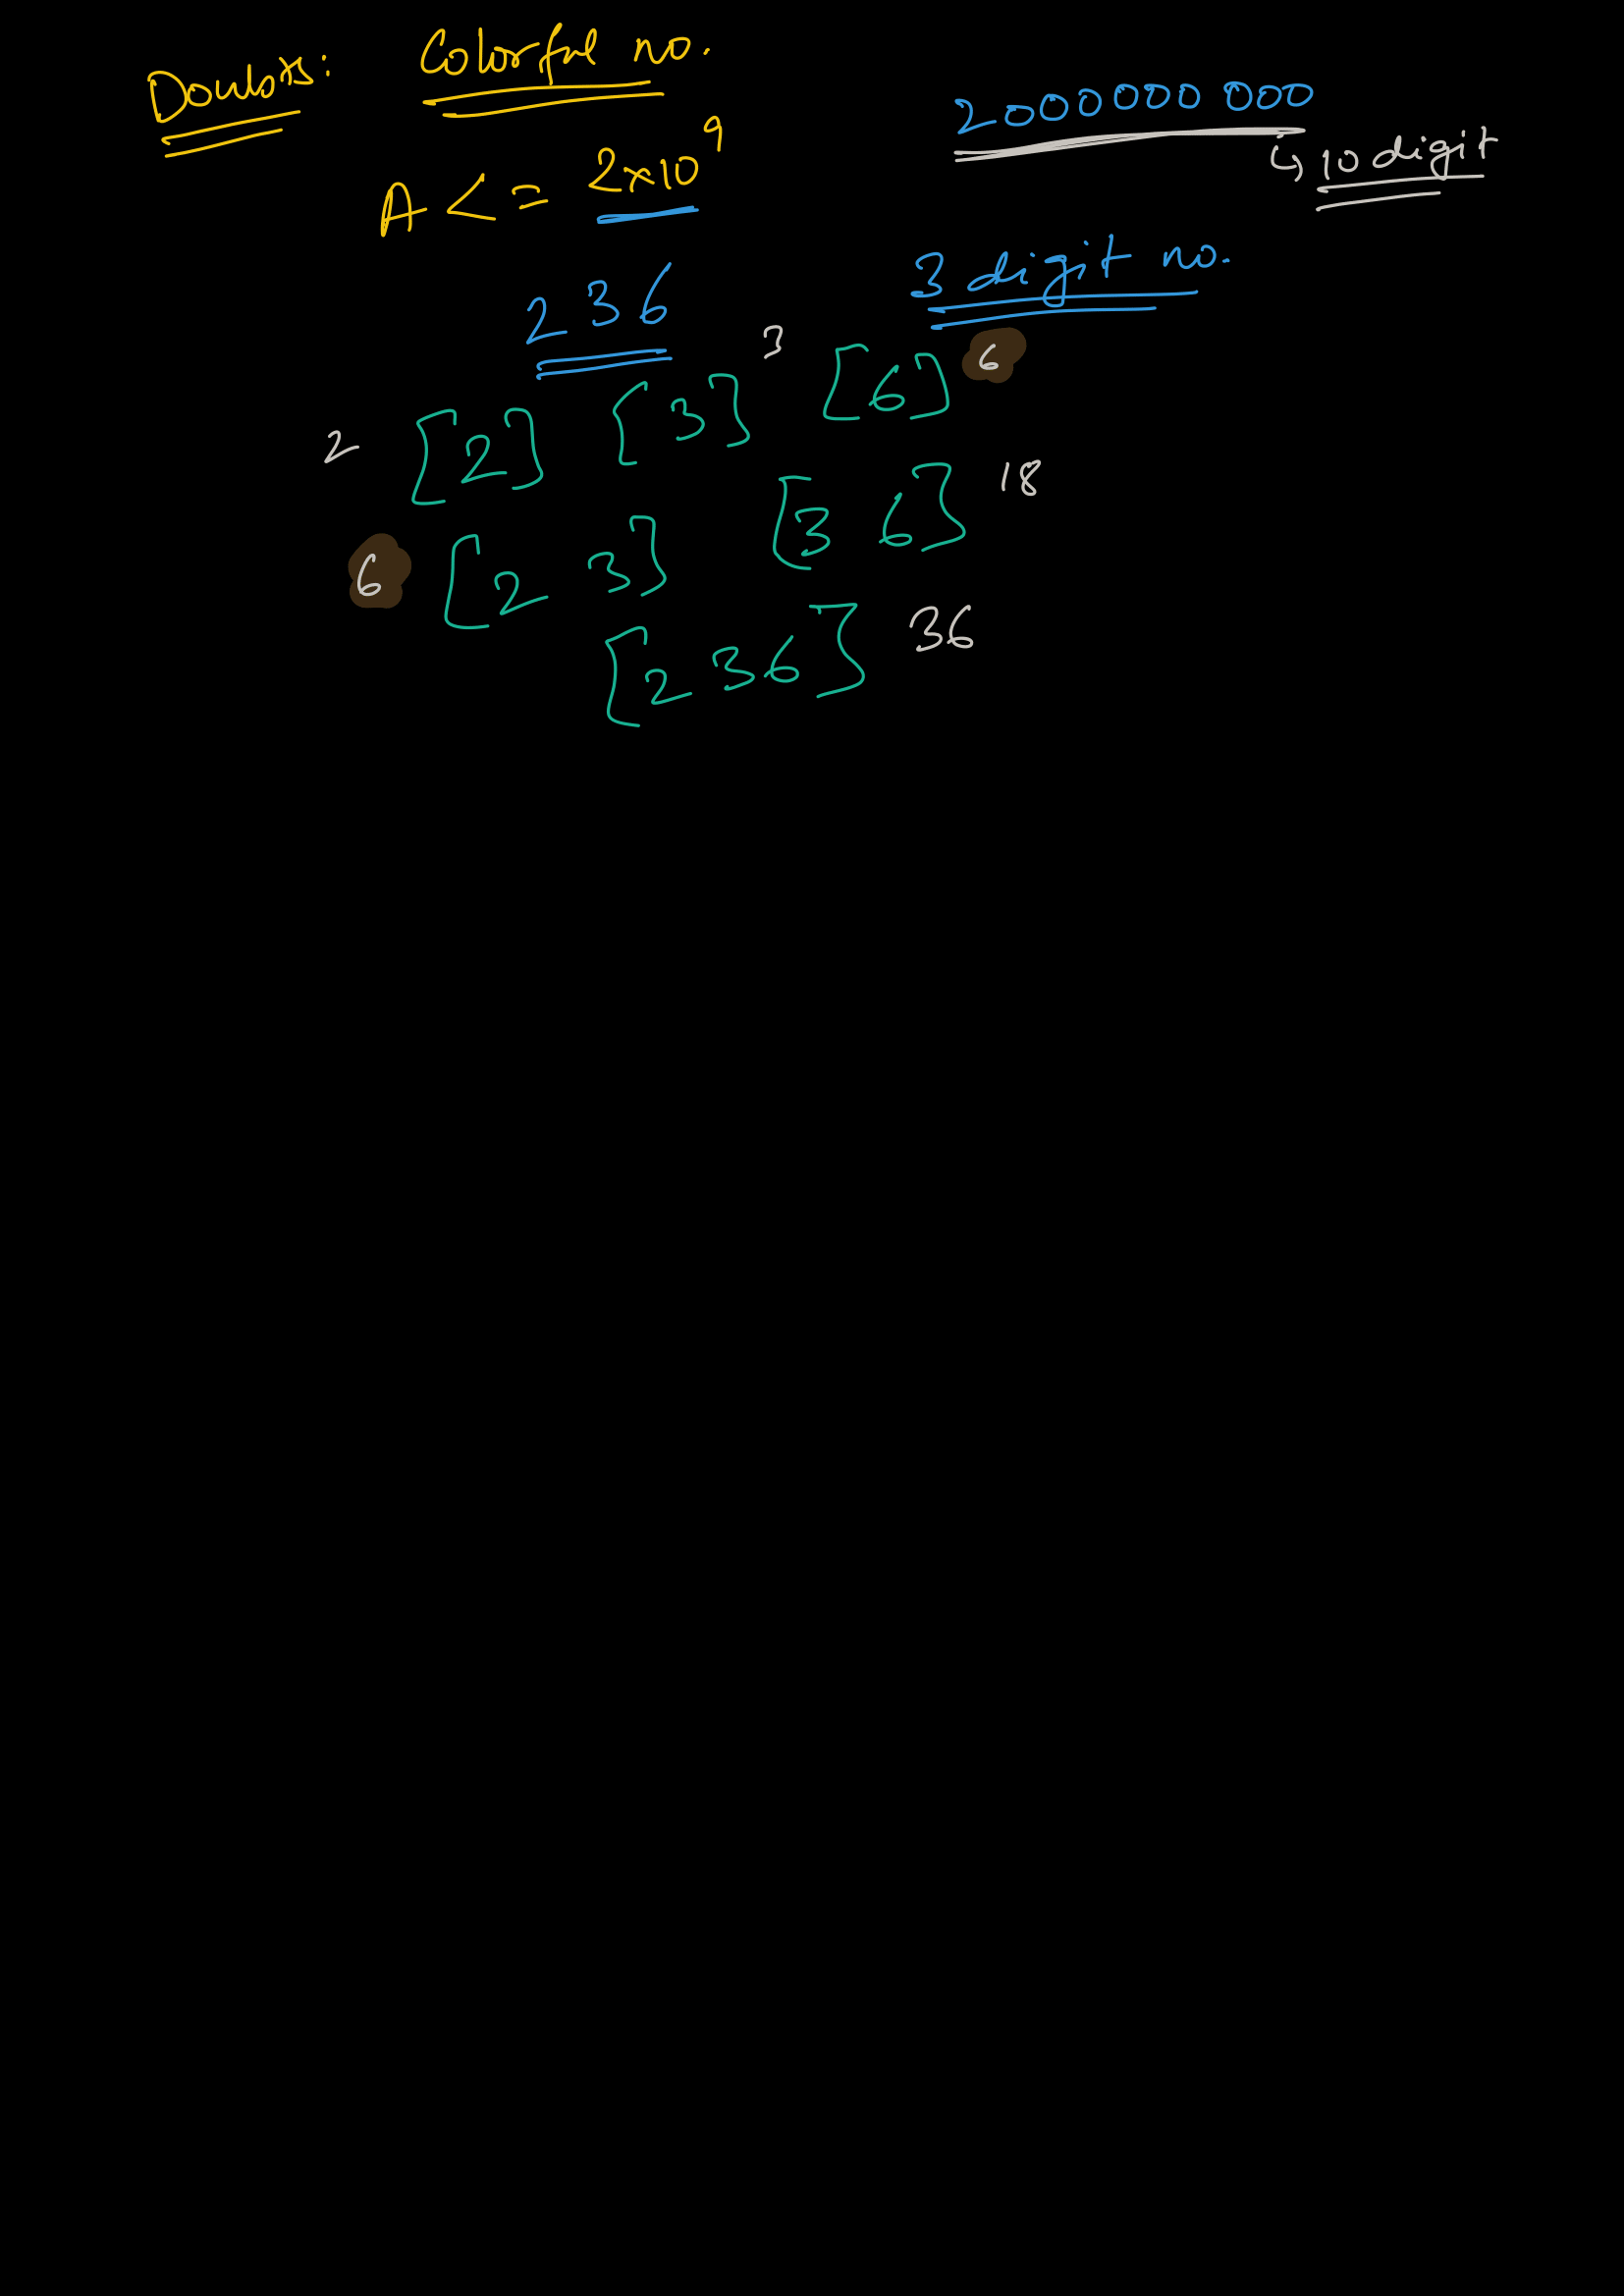 Doubts: Colorful no.
A <= 2×10⁹
2000000000
↳ 10 digit
236
3 digit no.
2 [2] [3] 3 [6] 6
6 [2 3] [3 6] 18
[2 3 6] 36